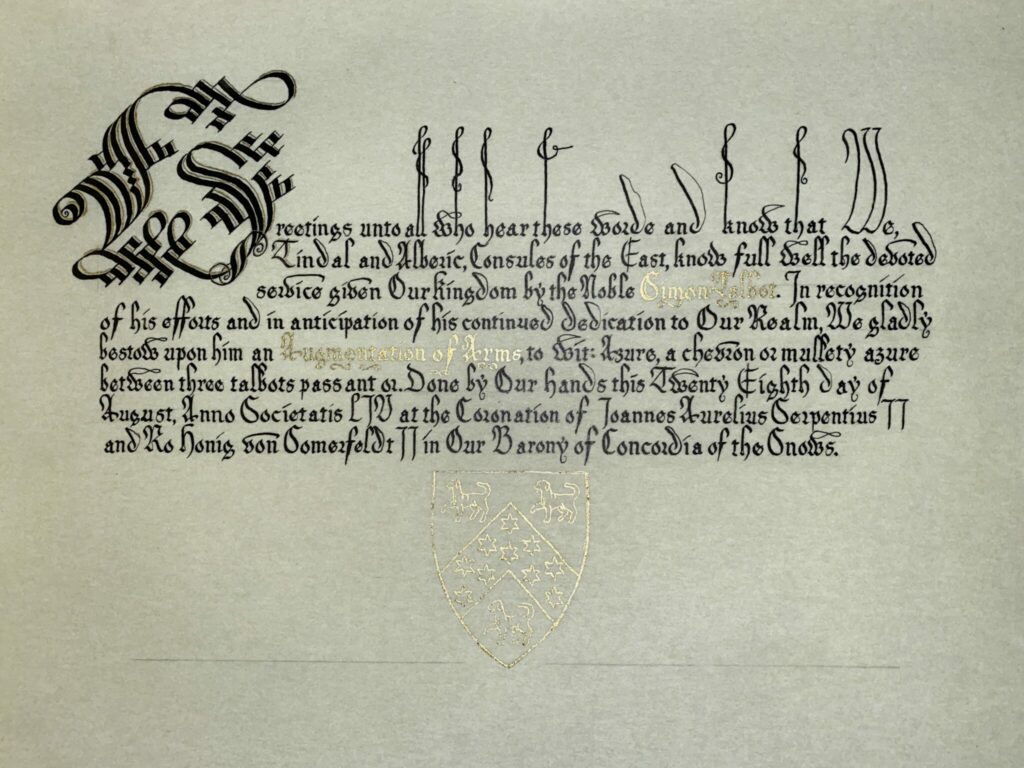 Greetings unto all who hear these words and know that We,
Tindal and Alberic, Consules of the East, know full well the devoted
service given Our Kingdom by the Noble Simon Talbot. In recognition
of his efforts and in anticipation of his continued dedication to Our Realm, We gladly
bestow upon him an Augmentation of Arms, to wit: Azure, a chevron or mullety azure
between three talbots passant or. Done by Our Hands this Twenty Eighth day of
August, Anno Societatis LIV at the Coronation of Ioannes Aurelius Serpentius II
and Ro Honig von Somerfeldt II in Our Barony of Concordia of the Snows.